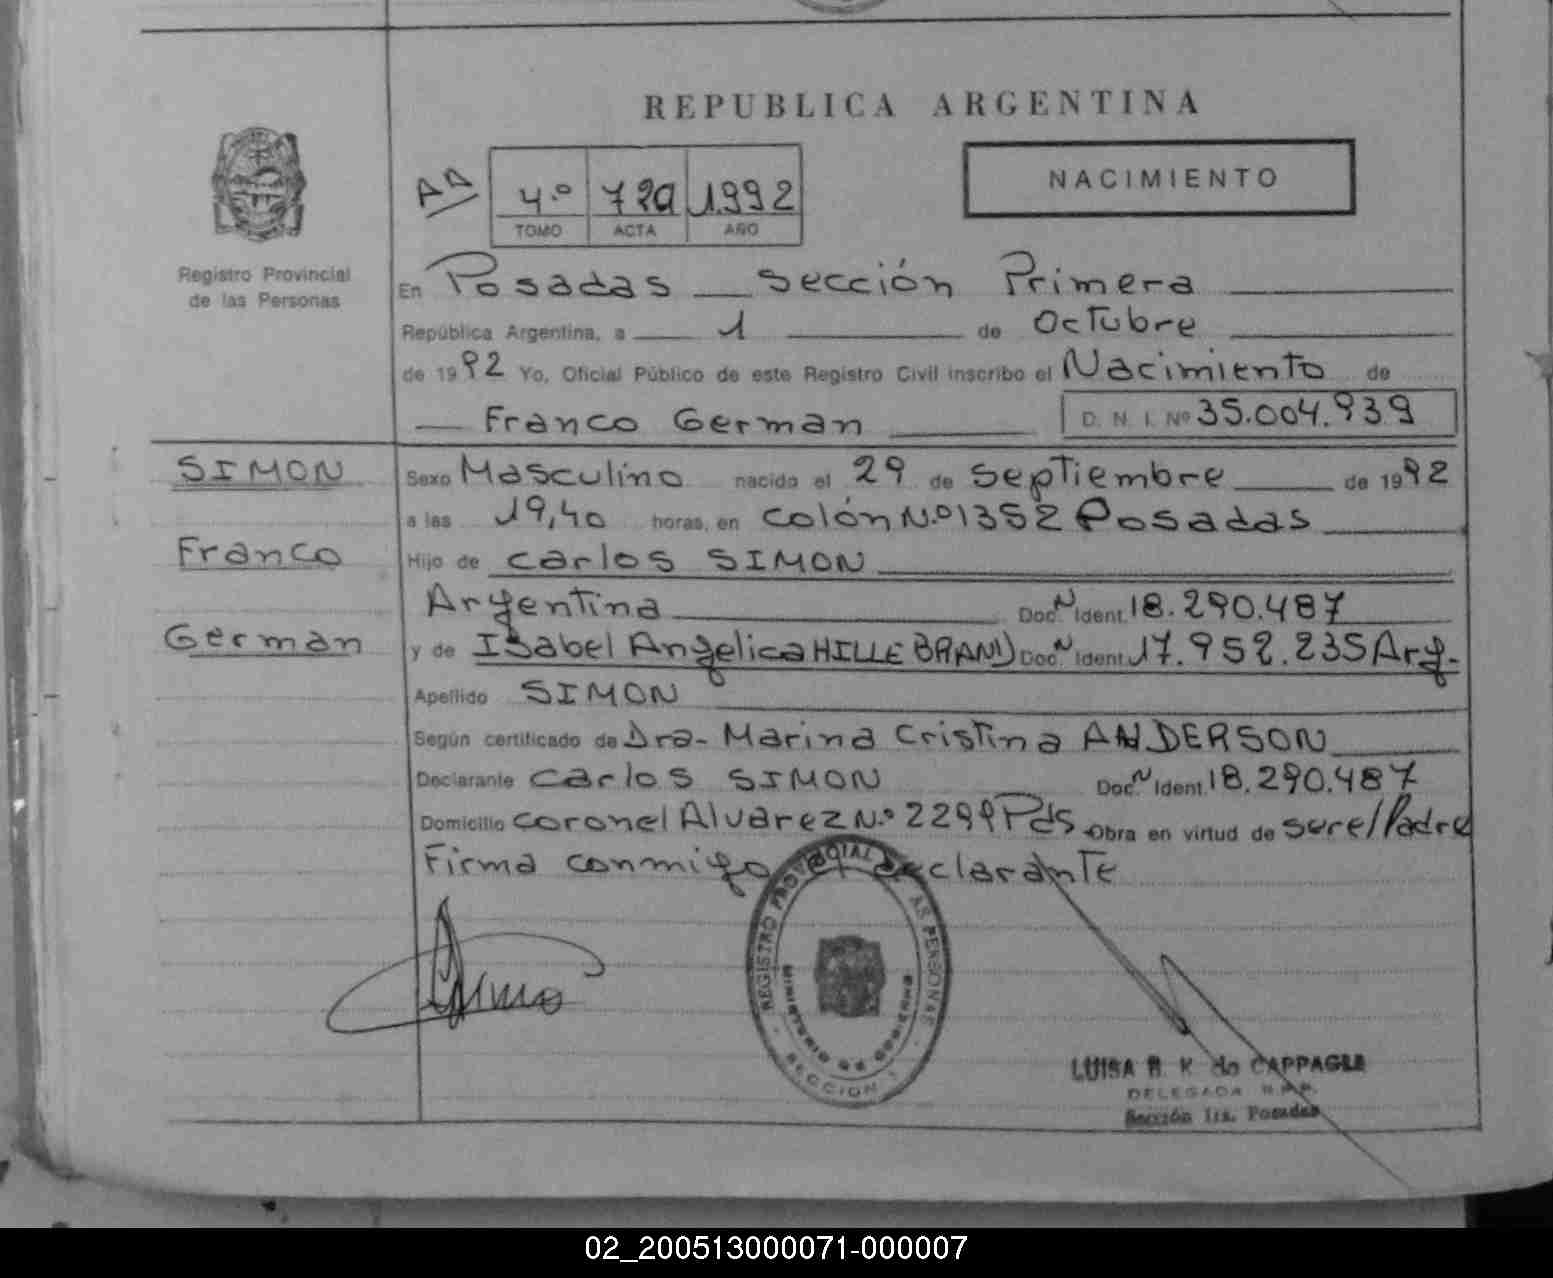 REPUBLICA ARGENTINA
NACIMIENTO
4.º 1992
TOMO ACTA AÑO
Registro Provincial
de las Personas
En Posadas sección Primera
República Argentina, a 1 de octubre
de 1992 Yo, Oficial Público de este Registro Civil inscribo el Nacimiento de
Franco German D. N. I. Nº 35.004.939
SIMON
Franco
German
Sexo Masculino nacido el 29 de septiembre de 1992
a las 19,40 horas, en colón N.º 1352 Posadas
Hijo de carlos SIMON
Argentina Doc. N Ident. 18.290.487
y de Isabel Angelica HILLEBRAND Doc. N Ident. 17.952.235 Arg.
Apellido SIMON
Según certificado de Dra- Marina Cristina ANDERSON
Declarante carlos SIMON Doc. N Ident. 18.290.487
Domicilio coronel Alvarez N.º 2299 Pds. Obra en virtud de ser el Padre
Firma conmigo el declarante
REGISTRO PROVINCIAL LAS PERSONAS
MINISTERIO DE GOBIERNO
SECCION 1
LUISA de CAPPAGLI
DELEGADA
Sección 1ra. Posadas
02_200513000071-000007